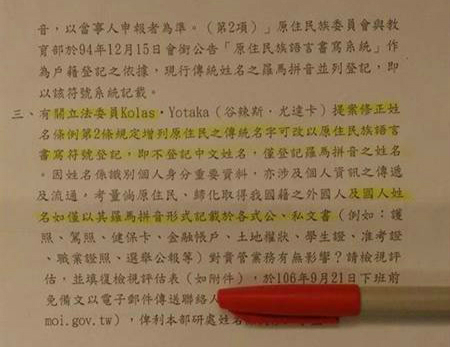 音,以當事人申報者為準。(第2項)」原住民族委員會與教
育部於94年12月15日會銜公告「原住民族語言書寫系統」作
為戶籍登記之依據,現行傳統姓名之羅馬拼音並列登記,即
以該符號系統記載。
三、有關立法委員Kolas.Yotaka(谷辣斯.尤達卡)提案修正姓
名條例第2條規定增列原住民之傳統名字可改以原住民族語言
書寫符號登記,即不登記中文姓名,僅登記羅馬拼音之姓名
。因姓名係識別個人身分重要資料,亦涉及個人資訊之傳遞
及流通,考量倘原住民、歸化取得我國籍之外國人及國人姓
名如僅以其羅馬拼音形式記載於各式公、私文書(例如:護
照、駕照、健保卡、金融帳戶、土地權狀、學生證、准考證
、職業證照、選舉公報等)對貴管業務有無影響?請檢視評
估,並填復檢視評估表(如附件),於106年9月21日下班前
免備文以電子郵件傳送聯絡人
moi.gov.tw),俾利本部研處姓名